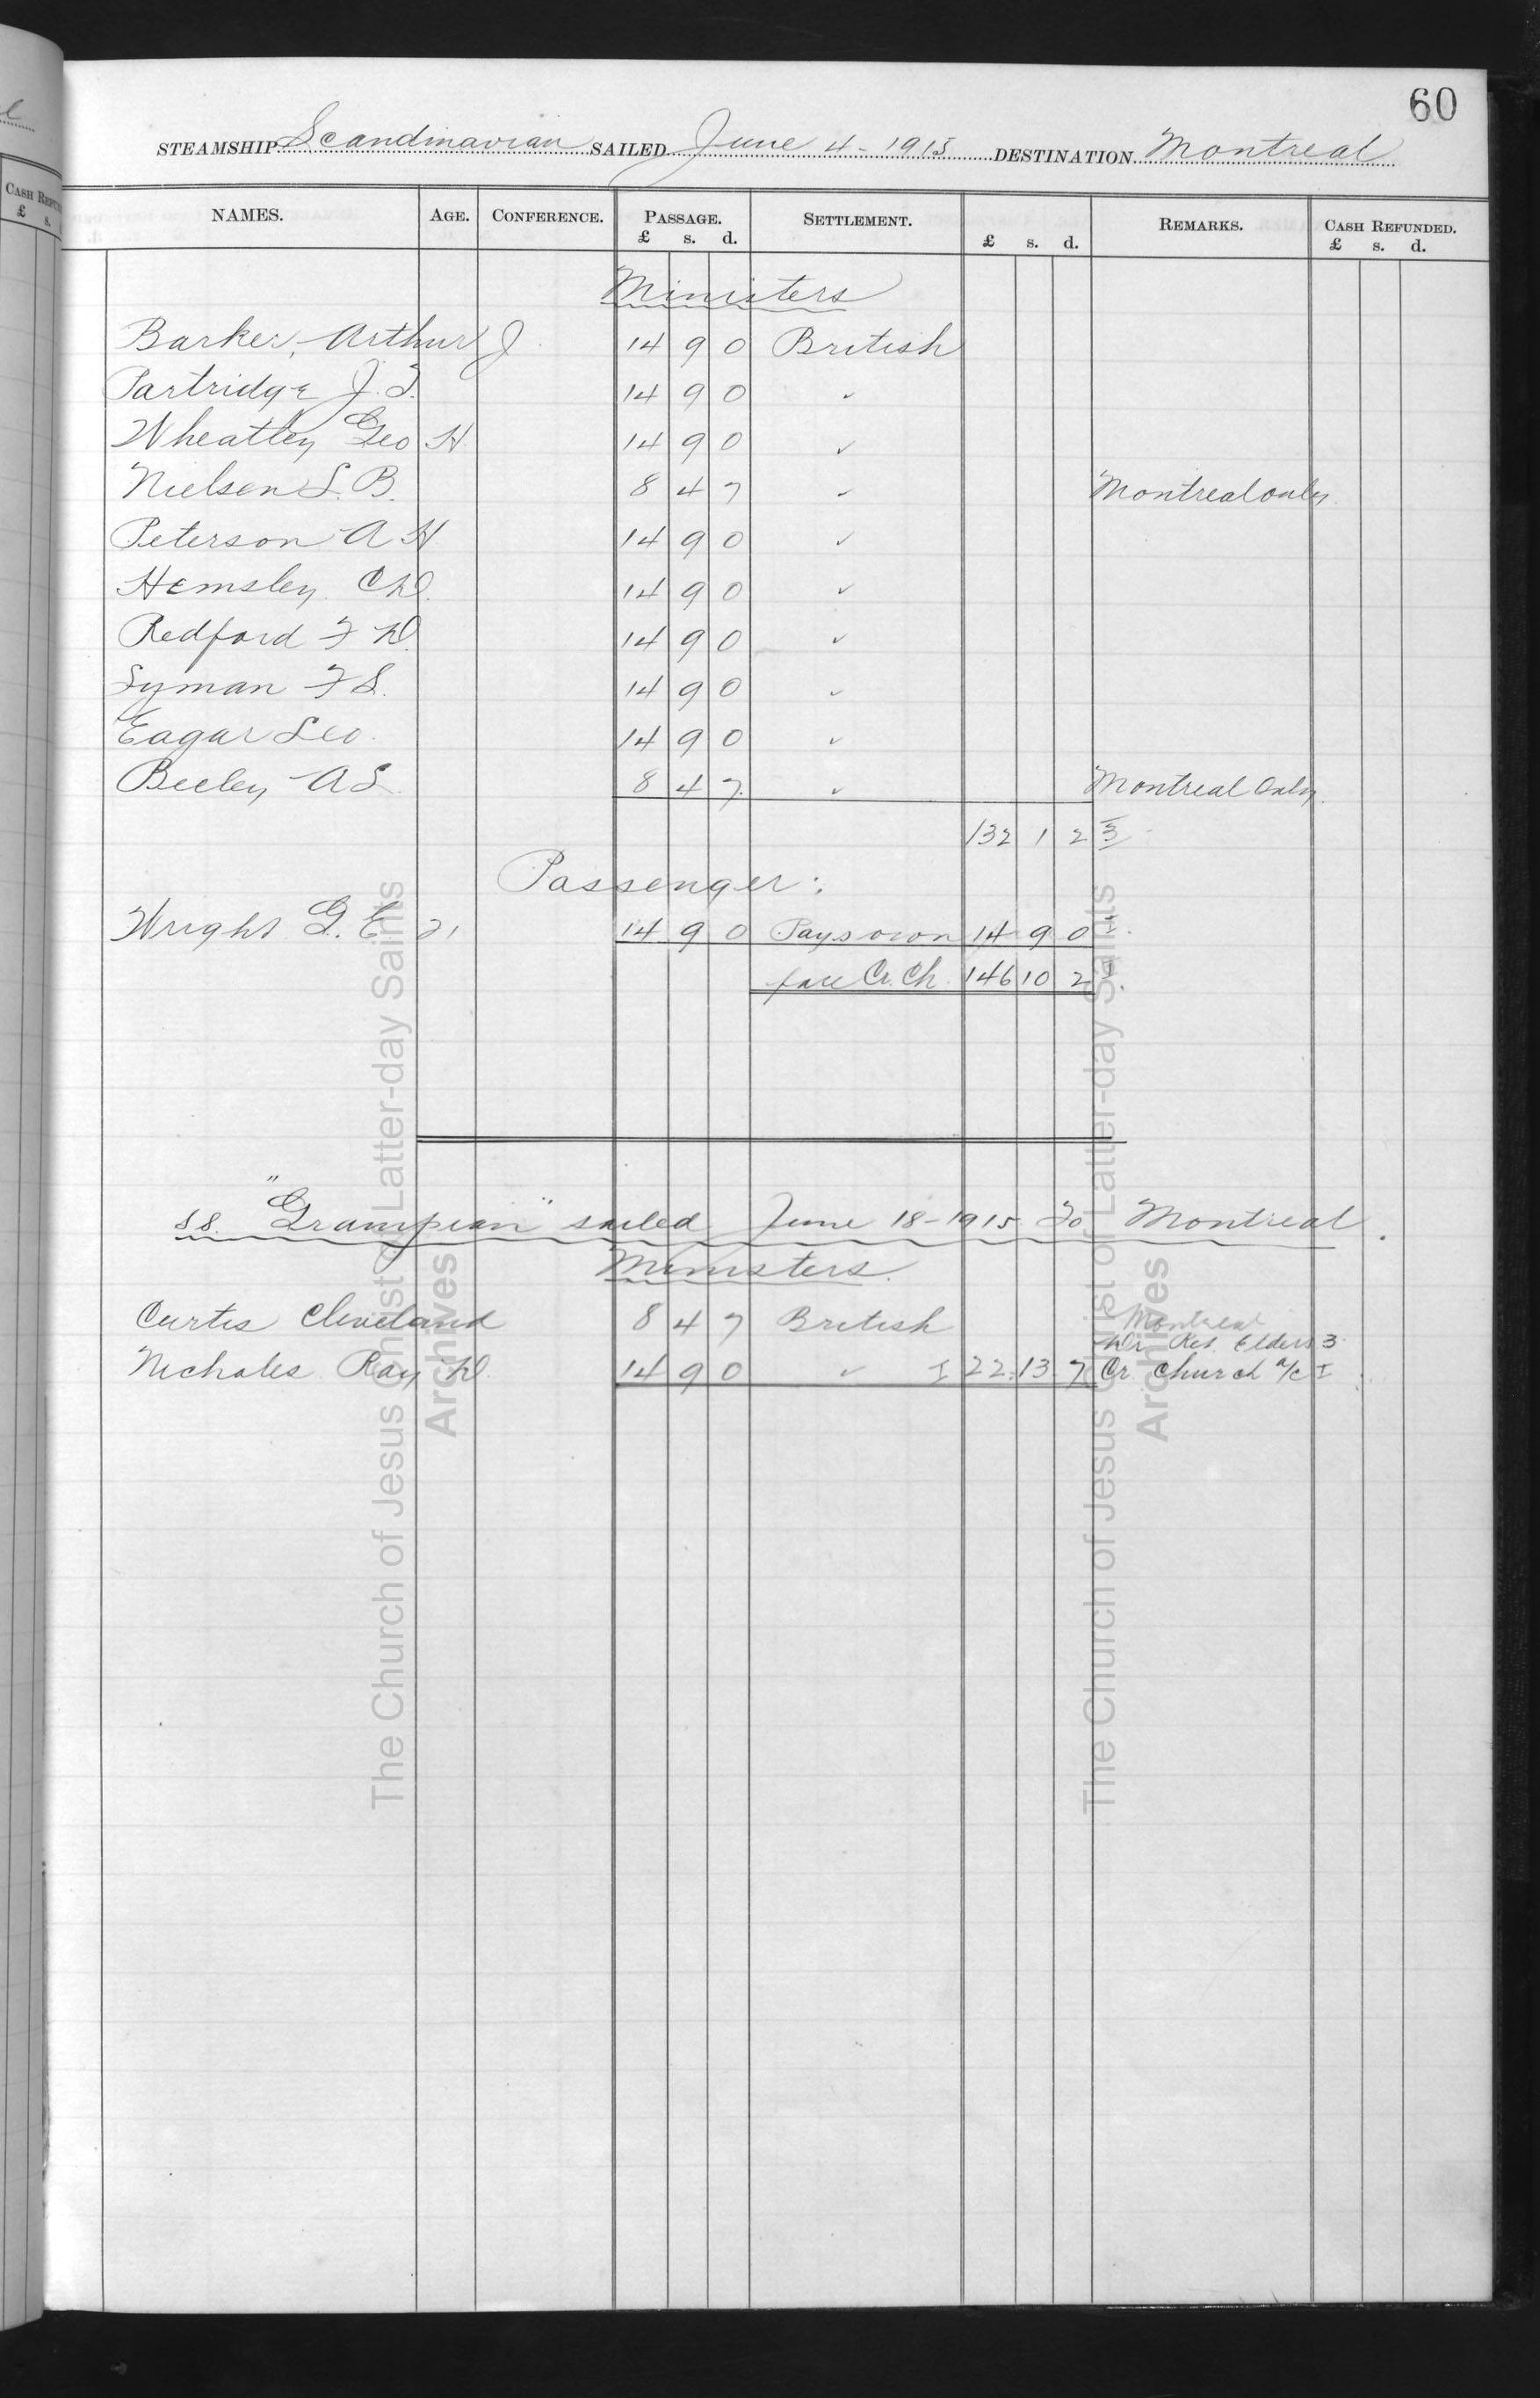 60
STEAMSHIP Scandinavian SAILED June 4-1915 DESTINATION Montreal
NAMES. AGE. CONFERENCE. PASSAGE. £ s. d. SETTLEMENT. £ s. d. REMARKS. CASH REFUNDED. £ s. d.
Ministers
Barker, Arthur J. 14 9 0 British
Partridge J. T. 14 9 0 ✓
Wheatley Geo H. 14 9 0 ✓
Nielsen L. B. 8 4 7 ✓ Montreal only
Peterson A H 14 9 0 ✓
Hemsley C W. 14 9 0 ✓
Redford F W. 14 9 0 ✓
Lyman F S. 14 9 0 ✓
Eagar Leo. 14 9 0 ✓
Beeley A S. 8 4 7. ✓ Montreal Only.
132 1 2 3
Passenger:
Wright G. E 21 14 9 0 Pays own 14 9 0
fare Cr. Ch. 146 10 2
SS. "Grampian" sailed June 18-1915 To Montreal.
Ministers.
Curtis Cleveland 8 4 7 British Montreal
Dr. Ret. Elders 3
Nicholes Ray W. 14 9 0 ✓ I 22 13 7 Cr. Church a/c I
The Church of Jesus Christ of Latter-day Saints
Archives
The Church of Jesus Christ of Latter-day Saints
Archives